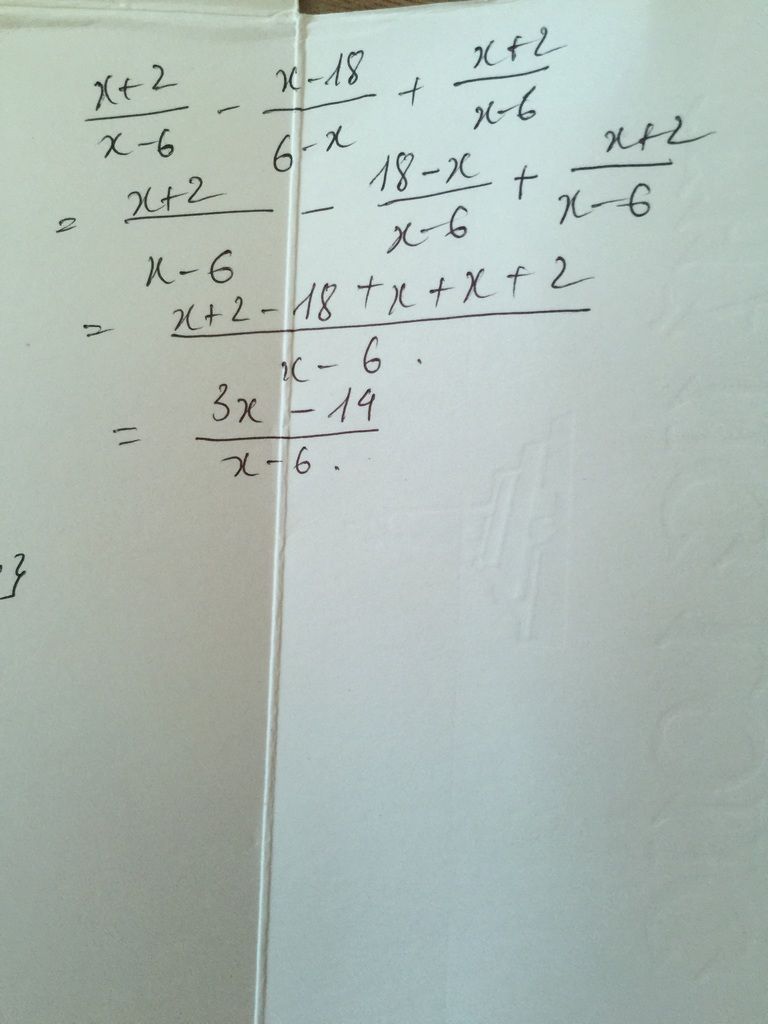 x+2/x-6 - x-18/6-x + x+2/x-6
= x+2/x-6 - 18-x/x-6 + x+2/x-6
= x+2-18+x+x+2/x-6.
= 3x-14/x-6.
}